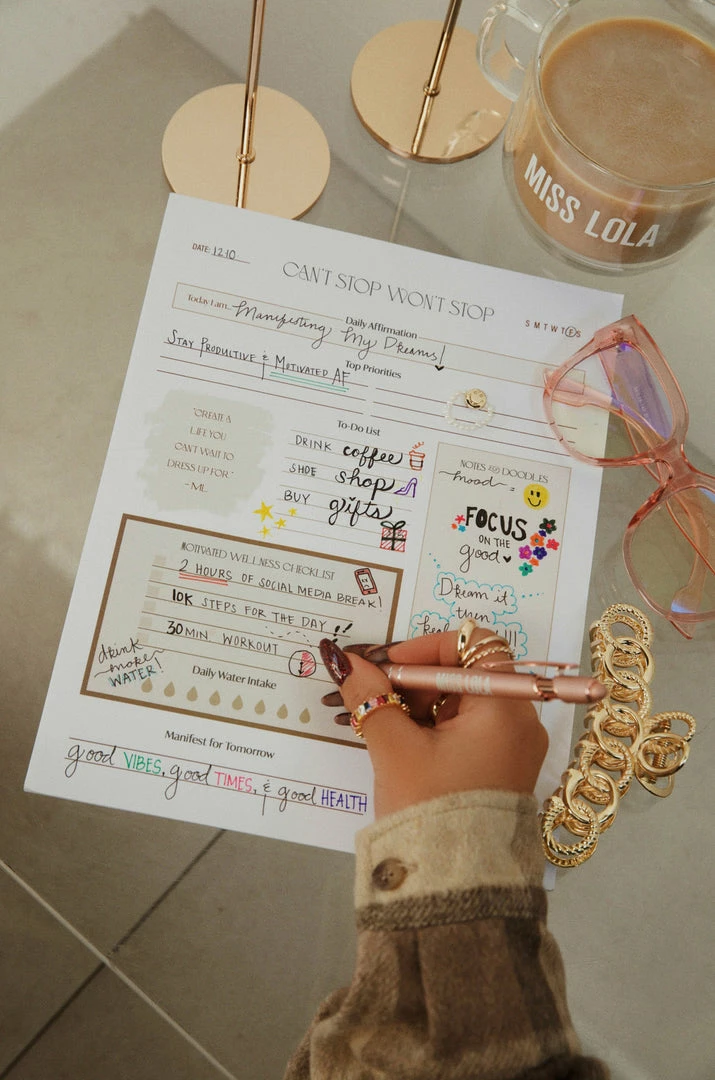 MISS LOLA
DATE: 12·10
CAN'T STOP WON'T STOP
S M T W T F S
Daily Affirmation
Today I am... Manifesting My Dreams!
Top Priorities
STAY PRODUCTIVE & MOTIVATED AF
"CREATE A
LIFE YOU
CAN'T WAIT TO
DRESS UP FOR."
- ML
To-Do List
DRINK coffee
SHOE shop
BUY gifts
NOTES AND DOODLES
mood =
FOCUS
ON THE
good
Dream it
then
MOTIVATED WELLNESS CHECKLIST
2 HOURS OF SOCIAL MEDIA BREAK!
10K STEPS FOR THE DAY !!
30 MIN WORKOUT
drink
more
WATER!
Daily Water Intake
Manifest for Tomorrow
good VIBES, good TIMES, & good HEALTH
MISS LOLA